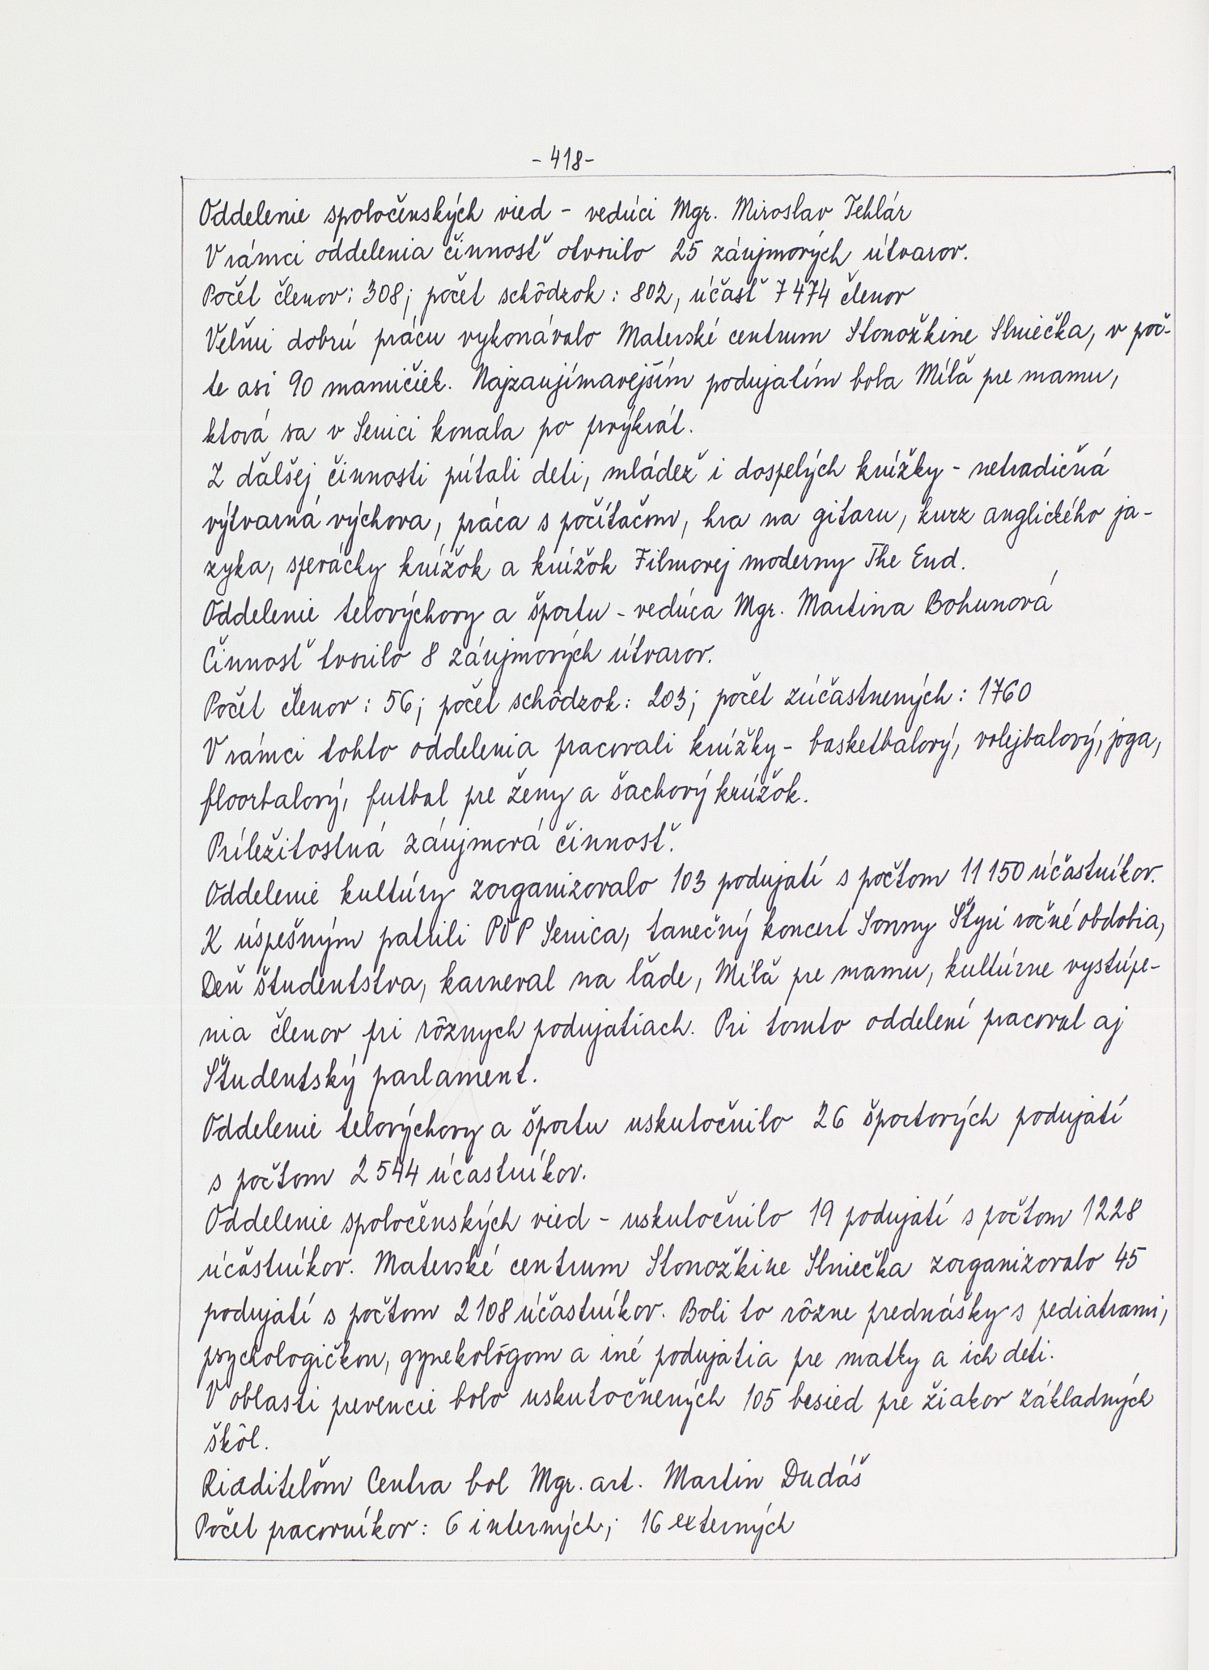 -418-
Oddelenie spoločenských vied - vedúci Mgr. Miroslav Tehlár
V rámci oddelenia činnosť otvorilo 25 záujmových útvarov.
Počet členov: 308; počet schôdzok: 802, účasť 7 474 členov
Veľmi dobrú prácu vykonávalo Materské centrum Stonožkine Slniečka, v poč-
te asi 90 mamičiek. Najzaujímavejším podujatím bola Míľa pre mamu,
ktorá sa v Senici konala po prvýkrát.
Z ďalšej činnosti pútali deti, mládež i dospelých krúžky - netradičná
výtvarná výchova, práca s počítačom, hra na gitaru, kurz anglického ja-
zyka, spevácky krúžok a krúžok Filmovej moderny The End.
Oddelenie telovýchovy a športu - vedúca Mgr. Martina Bohunová
Činnosť tvorilo 8 záujmových útvarov.
Počet členov: 56; počet schôdzok: 203; počet zúčastnených: 1760
V rámci tohto oddelenia pracovali krúžky - basketbalový, volejbalový, joga,
floorbalový, futbal pre ženy a šachový krúžok.
Príležitostná záujmová činnosť.
Oddelenie kultúry zorganizovalo 103 podujatí s počtom 11 150 účastníkov.
K úspešným patrili POP Senica, tanečný koncert Sonny Štyri ročné obdobia,
Deň študentstva, karneval na ľade, Míľa pre mamu, kultúrne vystúpe-
nia členov pri rôznych podujatiach. Pri tomto oddelení pracoval aj
Študentský parlament.
Oddelenie telovýchovy a športu uskutočnilo 26 športových podujatí
s počtom 2 544 účastníkov.
Oddelenie spoločenských vied - uskutočnilo 19 podujatí s počtom 1228
účastníkov. Materské centrum Stonožkine Slniečka zorganizovalo 45
podujatí s počtom 2 108 účastníkov. Boli to rôzne prednášky s pediatrami,
psychologičkou, gynekológom a iné podujatia pre matky a ich deti.
V oblasti prevencie bolo uskutočnených 105 besied pre žiakov základných
škôl.
Riaditeľom Centra bol Mgr. art. Martin Dudáš
Počet pracovníkov: 6 interných; 16 externých